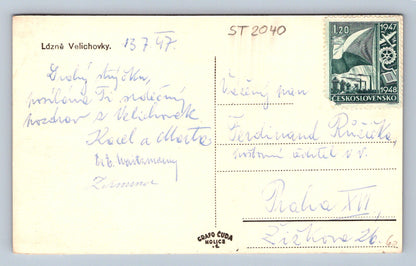 Lázně Velichovky.
13.7.47.
ST 2040
Drahý strýčku,
posíláme Ti srdečný
pozdrav z Velichovek
Karel a Marta
GRAFO ČUDA
HOLICE
1.20
1947
1948
ČESKOSLOVENSKO
Vážený pan
Ferdinand Růžička,
odborný učitel v.v.
Praha XII
Žižkova 26.